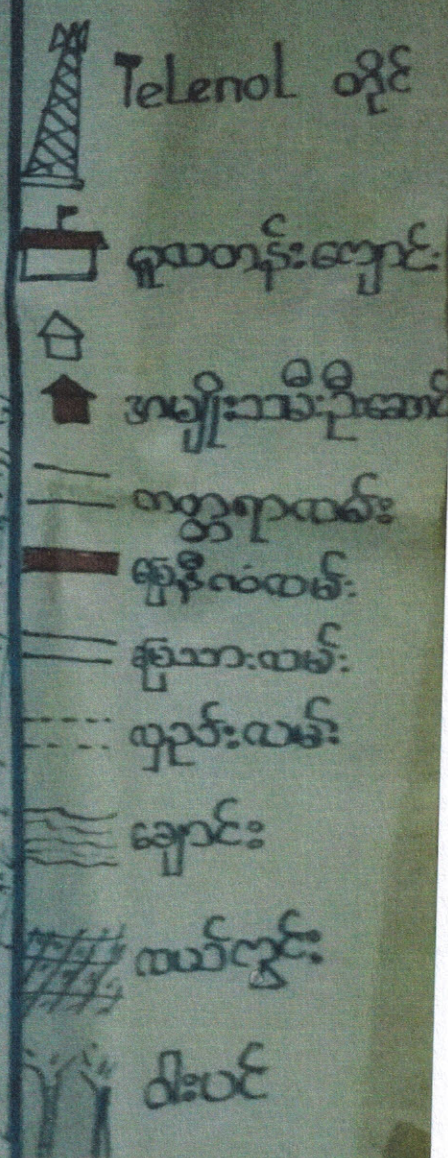 TeLenoL တိုင်
မူလတန်းကျောင်း
အမျိုးသမီးဦးဆောင်
ကတ္တရာလမ်း
မြေနီလမ်း
မြေသားလမ်း
လှည်းလမ်း
ချောင်း
လယ်ကွင်း
ဝါးပင်